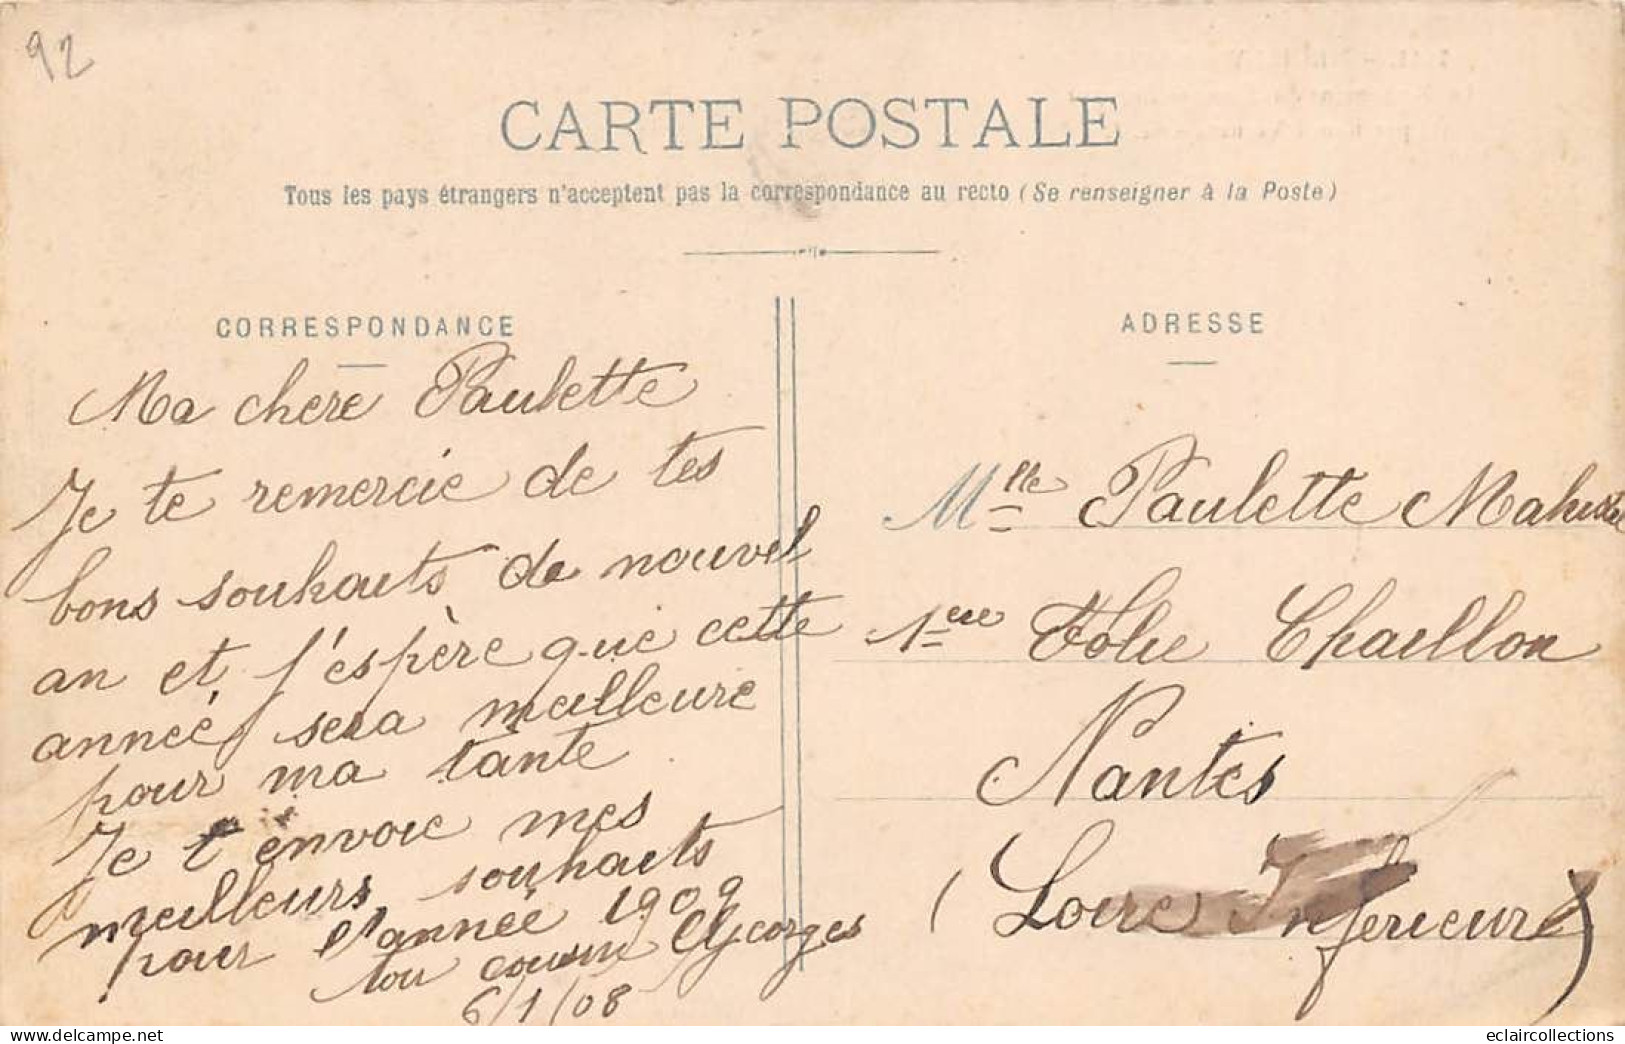 92
CARTE POSTALE
Tous les pays étrangers n'acceptent pas la correspondance au recto (Se renseigner à la Poste)
CORRESPONDANCE
Ma chere Paulette
Je te remercie de tes
bons souhaits de nouvel
an et j'espère que cette
année sera meilleure
pour ma tante
Je t'envoie mes
meilleurs souhaits
pour l'année 1909
ton cousin Georges
6/1/08
ADRESSE
Mlle Paulette
1ere Folie Chaillou
Nantes
(Loire Inférieure)
eclaircollections